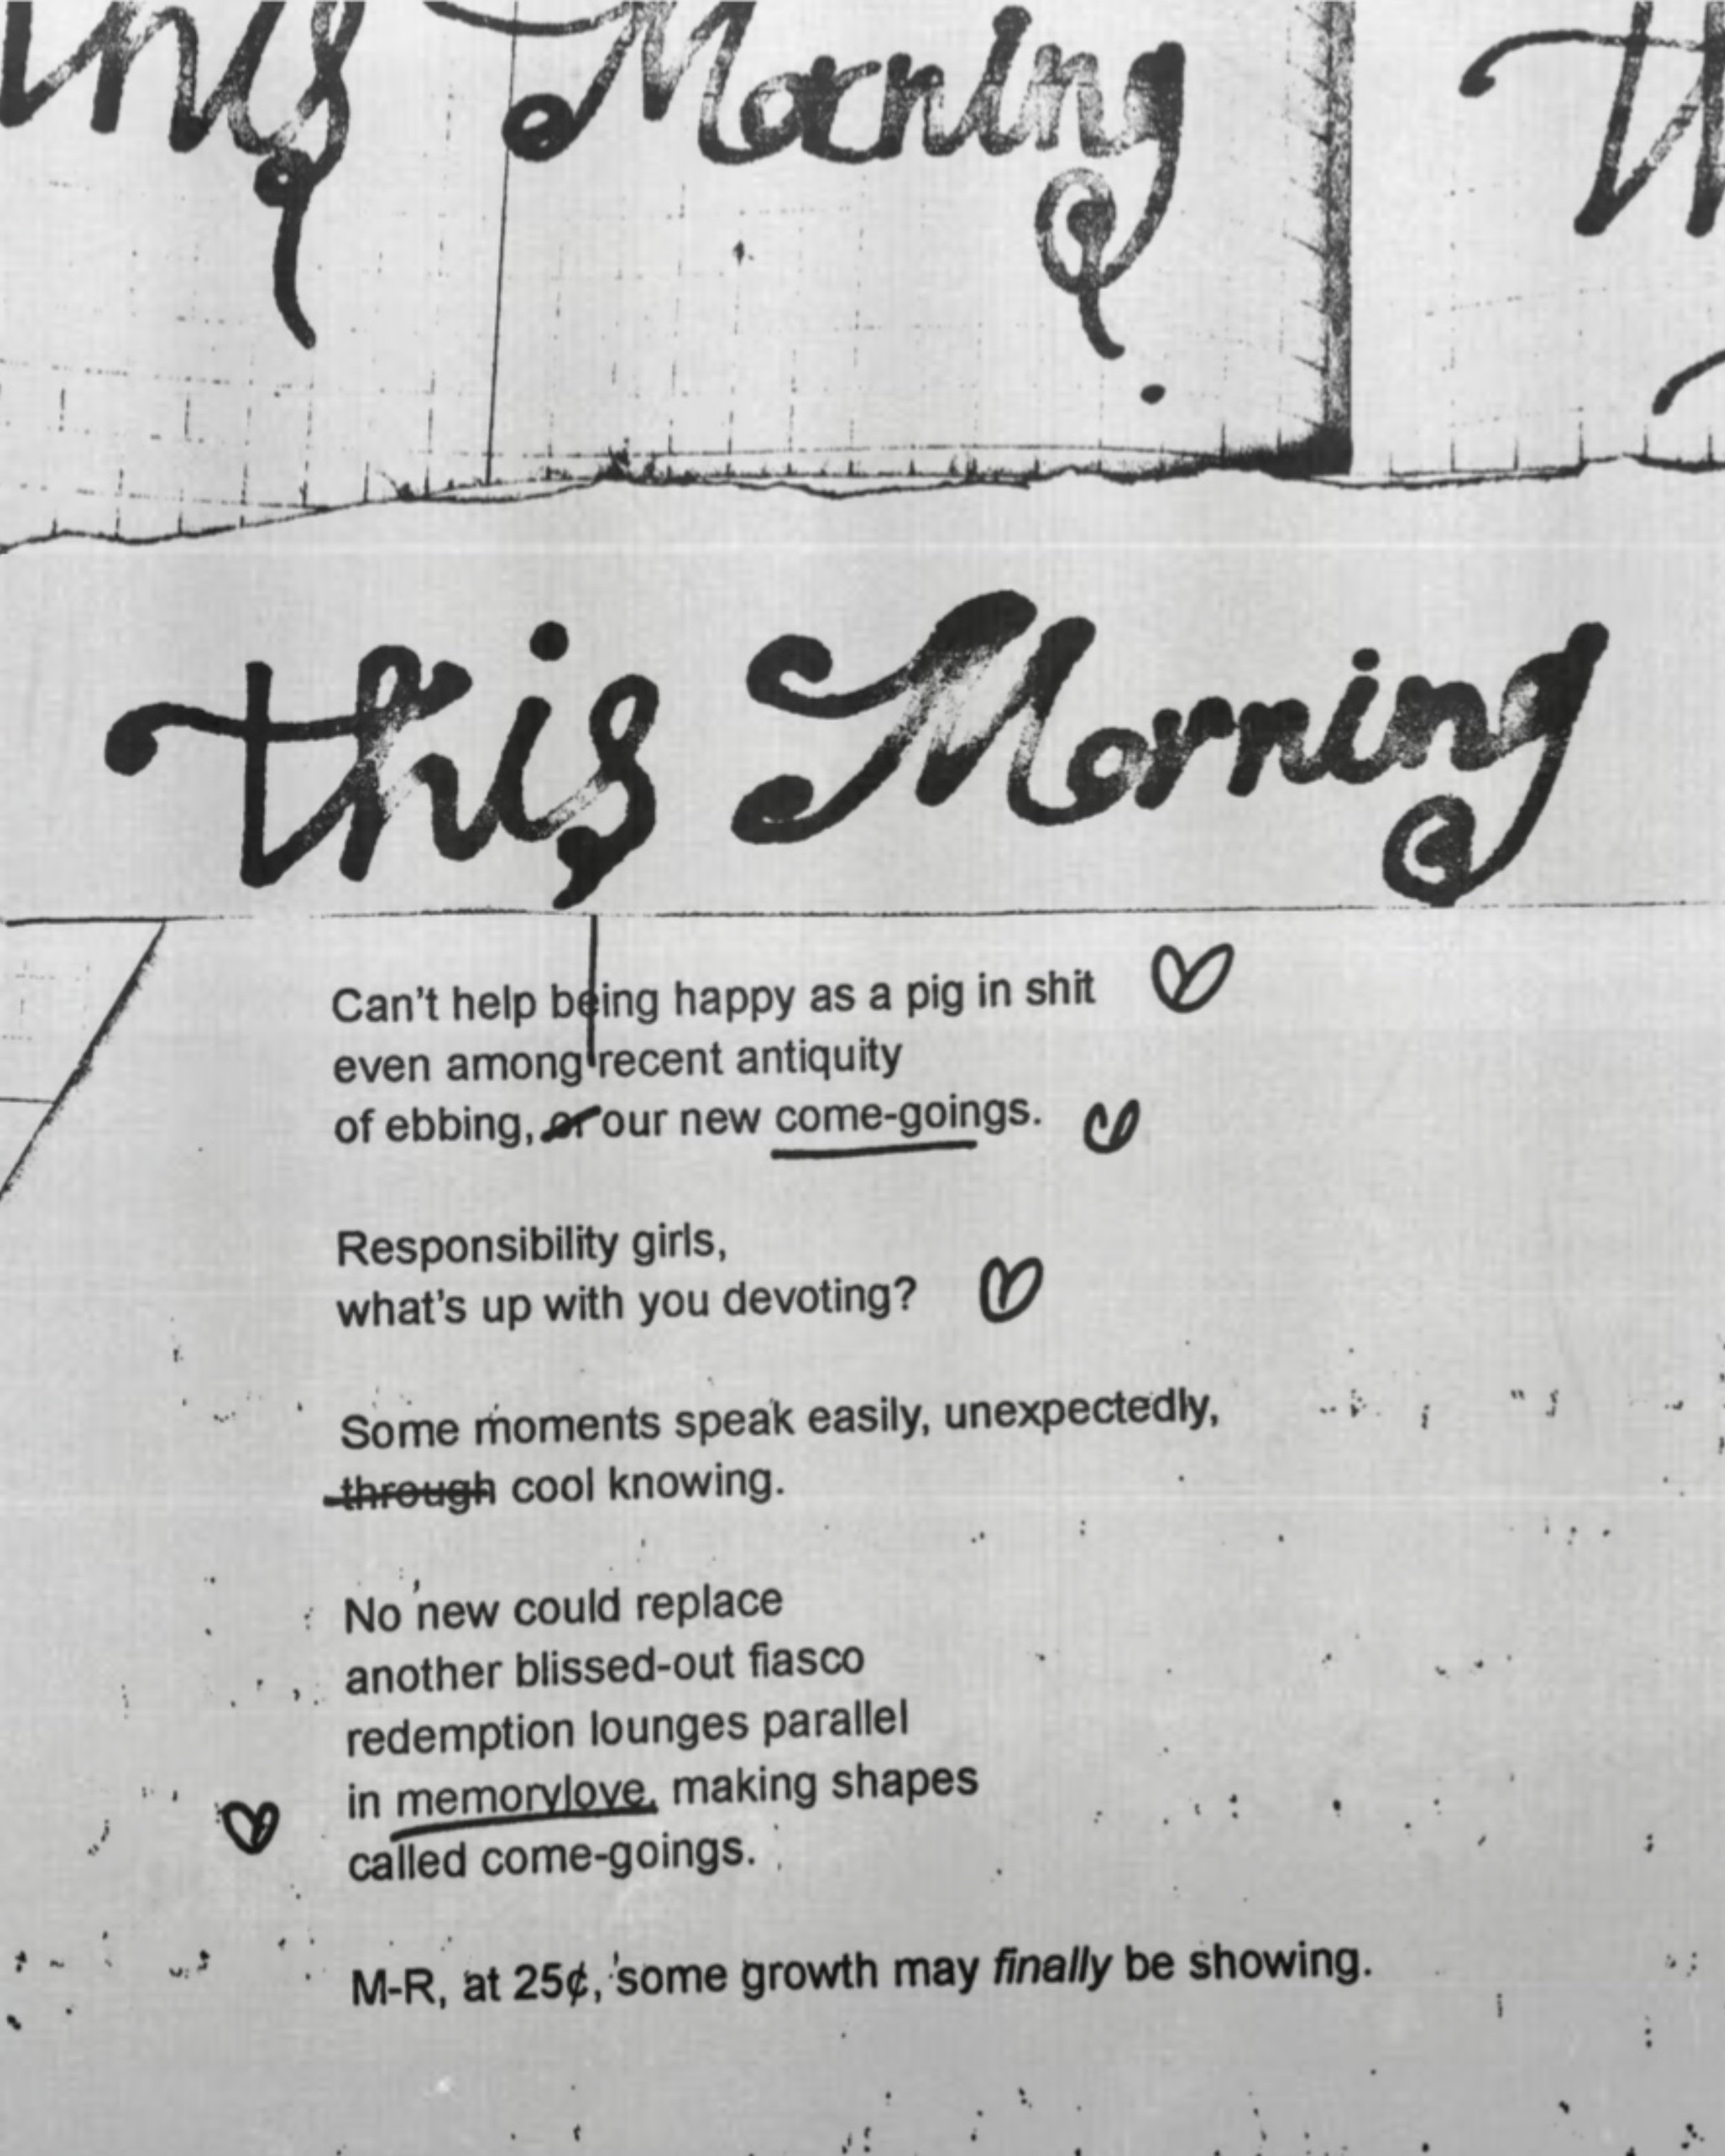 this Morning
this Morning
Can't help being happy as a pig in shit
even among recent antiquity
of ebbing, or our new come-goings.
Responsibility girls,
what's up with you devoting?
Some moments speak easily, unexpectedly,
through cool knowing.
No new could replace
another blissed-out fiasco
redemption lounges parallel
in memorylove, making shapes
called come-goings.
M-R, at 25¢, some growth may finally be showing.